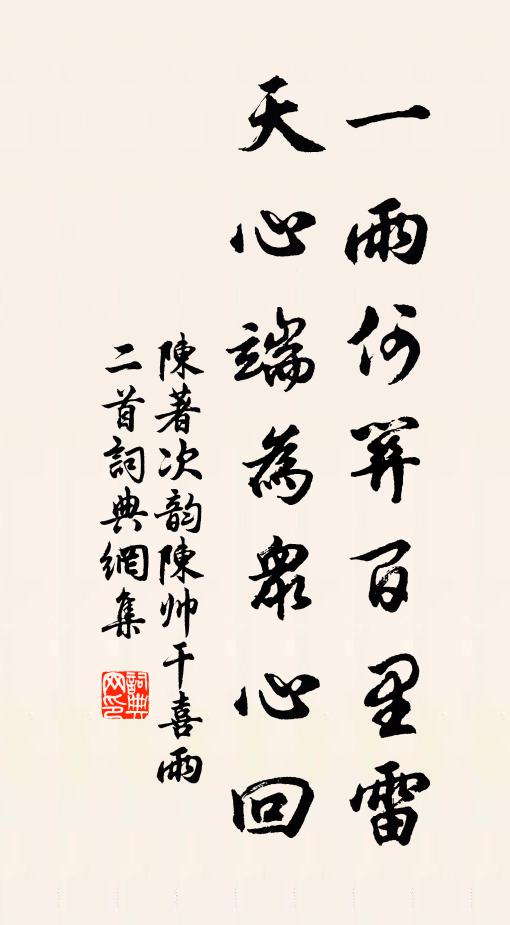 一雨何算百里雷
天心端為衆心回
陳著次韵陳帅干喜雨
二首詞典網集
詞典
网印